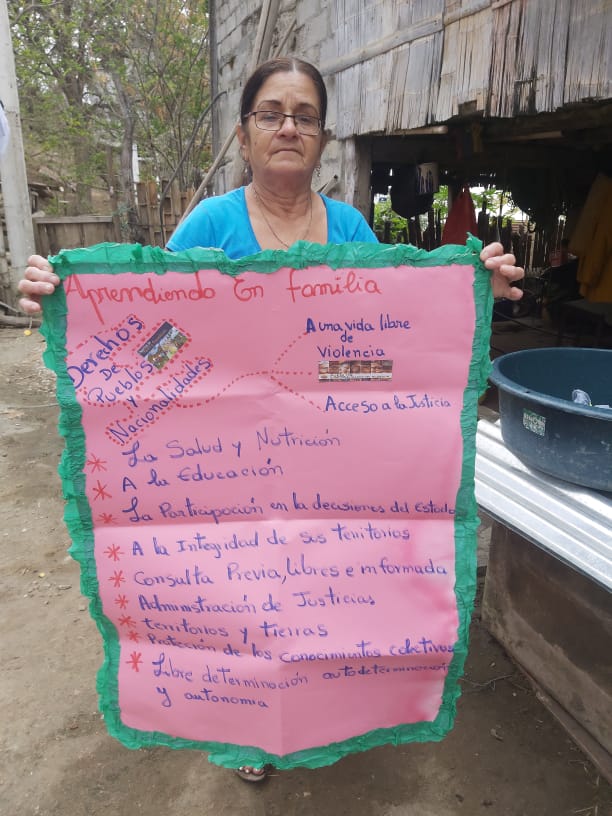 Aprendiendo En familia
Derechos
De
Pueblos
y
Nacionalidades
A una vida libre
de
Violencia
Acceso a la Justicia
La Salud y Nutrición
A la Educación
La Participación en la decisiones del Estado
A la Integridad de sus territorios
Consulta Previa, libres e informada
Administración de Justicias
territorios y tierras
Protección de los conocimientos colectivos
Libre determinación autodeterminación
y autonomia